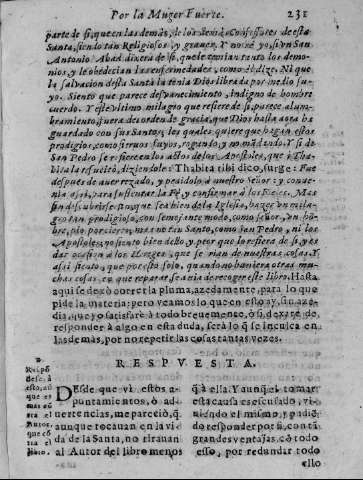 Por la Muger Fuerte. 231
parte de si, que en las demàs, de los demàs Confessores de esta
Santa, siendo tan Religiosos, y graves. Y no sè yo, si vn San
Antonio Abad dixera de si, que le temian tanto los demo-
nios, y le obedecian las enfermedades, como èl dize. Ni que
la salvacion desta Santa la tenia Dios librada por medio su-
yo. Siento que parece desvanecimiento, indigno de hombre
cuerdo. Y este vltimo milagro que refiere de si, parece alum-
bramiento, fuera des orden de gracia, que Dios hasta aora ha
guardado con sus Santos, los quales quiere que hagan estos
prodigios, como siervos suyos, rogando, y no mãdando. Y si de
San Pedro se refiere en los actos de los Apostoles, que à Tha-
bita la resucitò, diziendole: Thabita tibi dico, surge: Fue
despues de aver rezado, y pedidolo à nuestro Señor: y conve-
nia assi, para fundamentar la Fè, y confirmar à los Fieles. Mas
sin descubrirse que sea bien de la Iglesia, hazer vn mila-
gro tan prodigioso, con semejante modo, como señor, vn hõ-
bre, pio por cierto, mas no tan Santo, como San Pedro, ni los
Apostoles, no siento bien dello, y peor que lo refiera de si, y es
dar ocasion à los Hereges, que se rian de nuestras cosas. Y
assi sicuto, que por esto solo, quando no huviera otras mu-
chas cosas, en que reparar se avia de recoger este libro. Hasta
aqui se dexò correr la pluma, azedamente, para lo que
pide la materia: pero veamos lo que en esto ay, sin aze-
dia, que yo satisfarè à todo brevemente, ò si dexare de
responder à algo en esta duda, serà lo q̃ se incluca en
las demàs, por no repetir las cosas tantas vezes.
RESPVESTA.
Respõ
dese, à
esto, aũ
que es
mas cõ-
tra el
Autor,
que cõ
tra el
libro.
Desde que vi estos a-
puntamientos, ò ad-
uertencias, me pareciò, q̃
aunque tocauan en la vi-
da de la Santa, no tirauan
al Autor del libro menos
q̃ à ella. Y aunq̃ el tomar
esta causa es escusado, vi-
niendo el mismo, y pudiẽ
do responder por si, con tã
grandes ventajas, cõ todo
esso, por redundar todo
ello